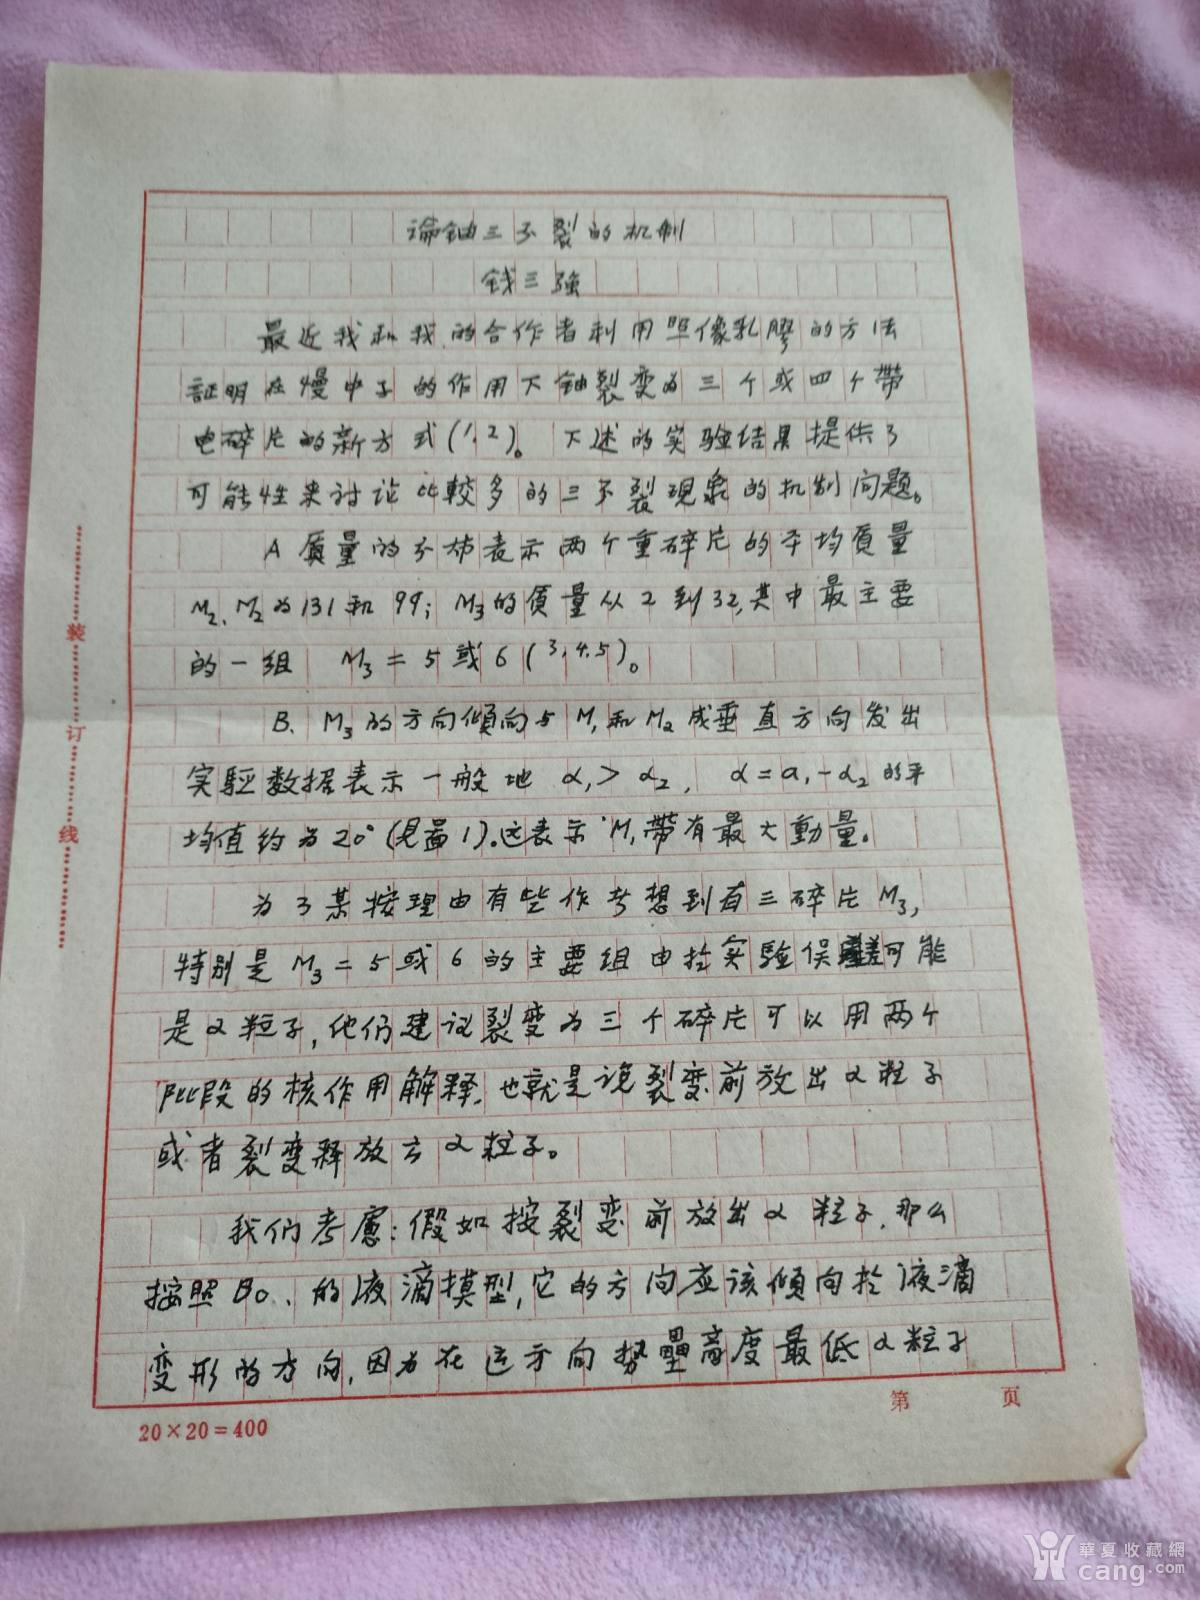 论铀三分裂的机制
钱三強
最近我和我的合作者利用照像乳膠的方法
証明在慢中子的作用下铀裂变为三个或四个帶
电碎片的新方式(1,2)。下述的实验结果提供了
可能性来讨论比較多的三分裂现象的机制问题。
A 质量的分布表示两个重碎片的平均質量
M2、M2为131和99；M3的質量从2到32,其中最主要
的一组 M3=5或6(3,4,5)。
B、M3的方向傾向与M1和M2成垂直方向发出
实驗数据表示一般地 α1>α2, α=α1-α2的平
均值约为20°(見啚1).这表示M1带有最大動量。
为了某按理由有些作者想到有三碎片M3,
特别是M3=5或6的主要组由於实验俁差可能
是α粒子,他们建议裂变为三个碎片可以用两个
阶段的核作用解釋.也就是说裂变前放出α粒子
或者裂变释放方α粒子。
我们考慮:假如按裂变前放出α粒子.那么
按照Bo、的液滴摸型,它的方向应该傾向於液滴
变形的方向,因为在这方向势壘高度最低α粒子
装
订
线
20×20=400
第 页
華夏收藏網
cang.com